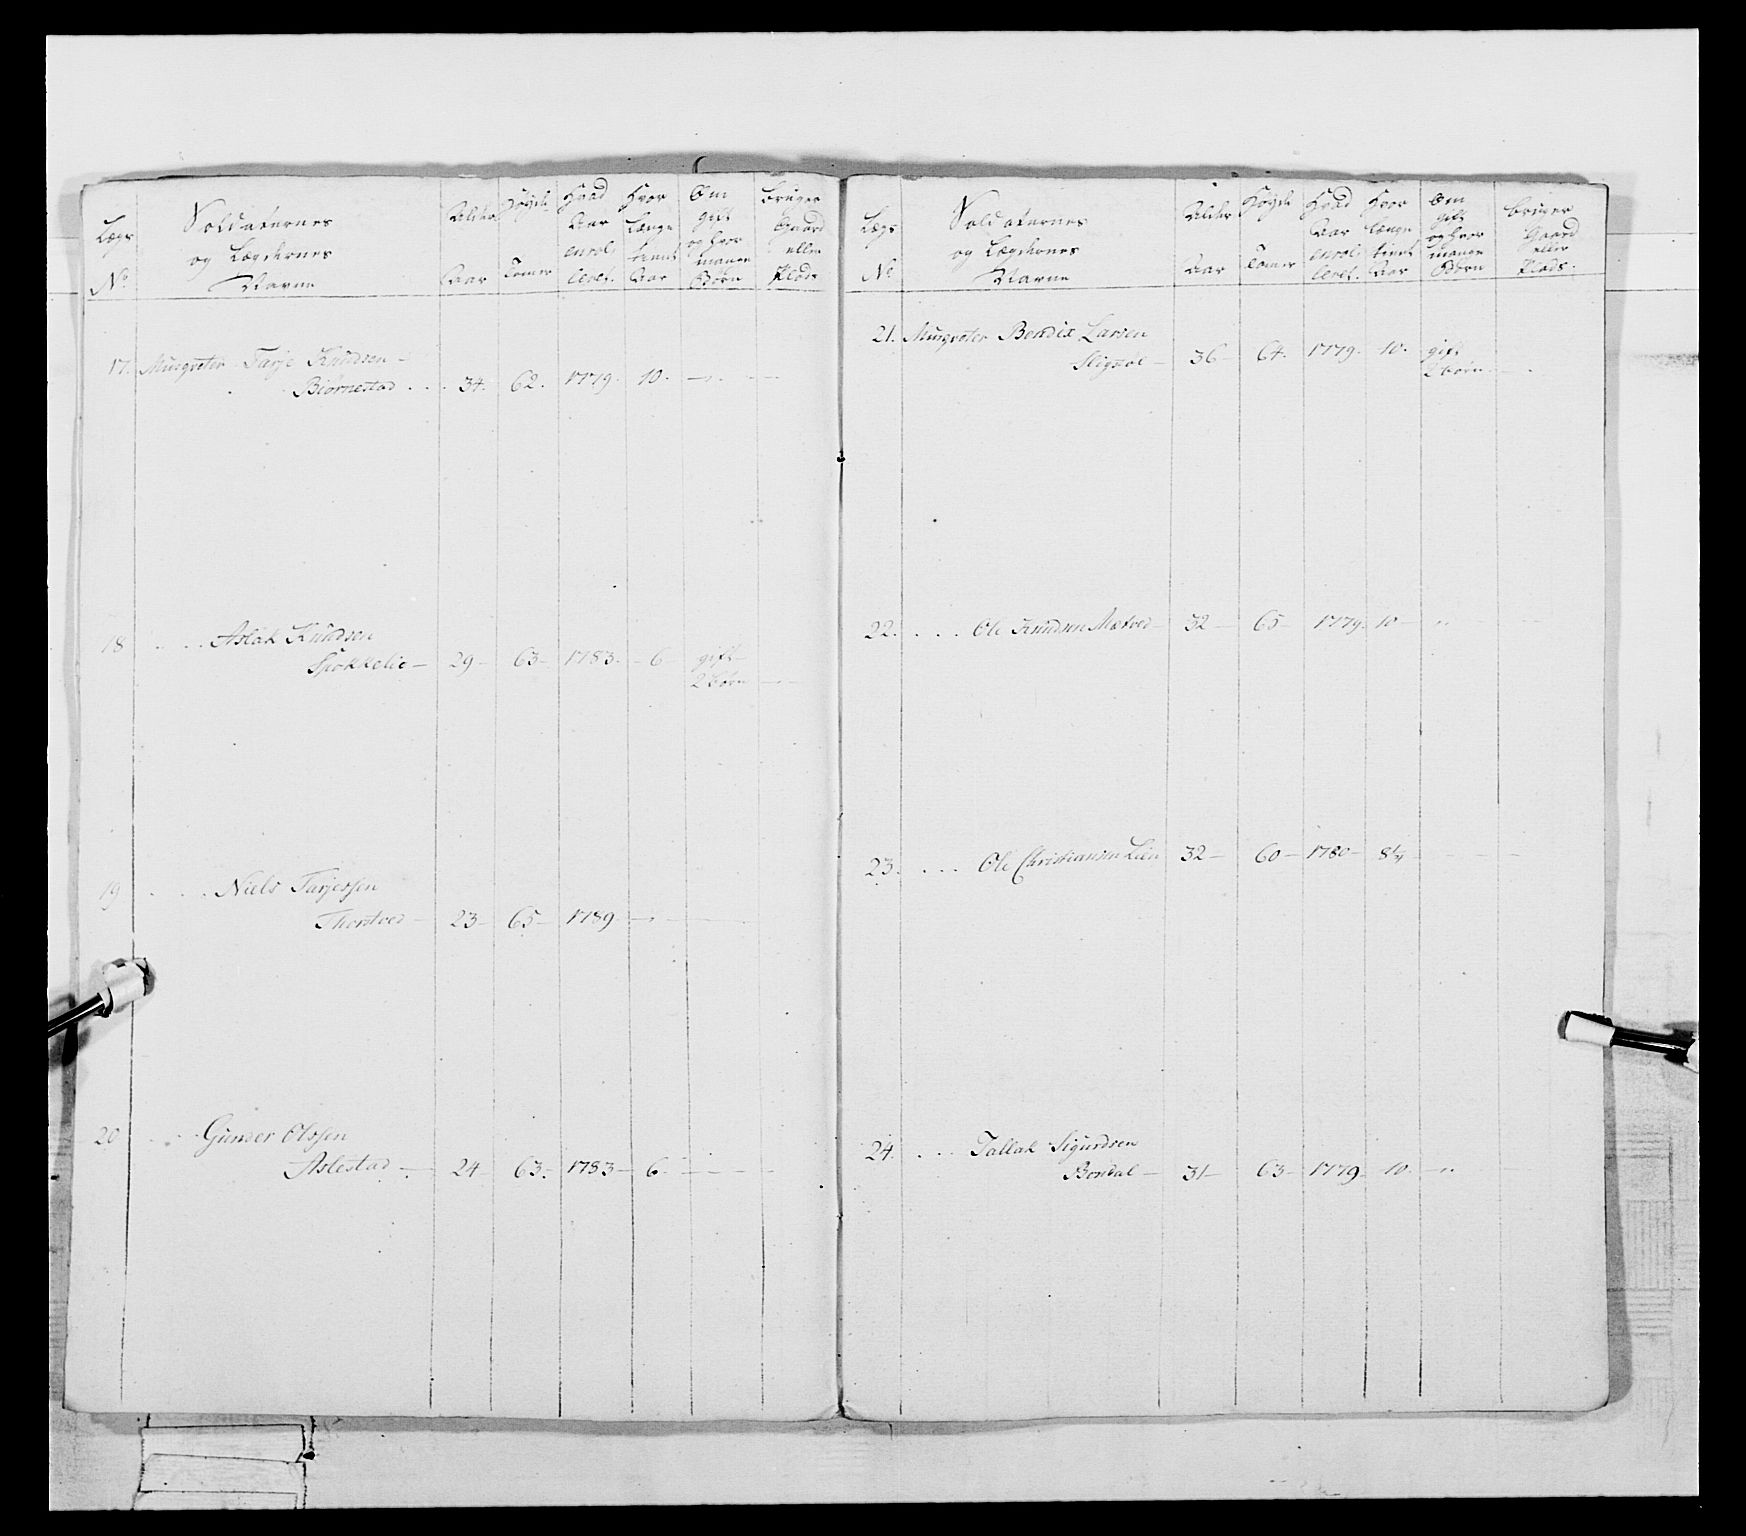 Lægs No
Soldaternes og Lægdernes Navne
Alder Aar
Høyde Tomer
Hvad Aar enrolleret.
Hvor længe tient Aar
Om gift og hvor mange Børn
bruger Gaard eller Plads
17. Musqveter Tarje Knudsen -
Biornestad . . . 34. 62. 1779. 10. - . -
18 . . . . Aslak Knudsen
Spokkelie - 29 - 63 - 1783. - 6 - gift -
2 børn - . -
19 . . . . Niels Tarjessen
Thorstved - 23 - 65 - 1789. - . -
20 . . . Gunder Olssen
Aslestad - 24 63. - 1783 - 6. - - -
Lægs No
Soldaternes og Lægdernes Navne
Alder Aar
Høyde Tomer
Hvad Aar enrolleret.
Hvor længe tient Aar
Om gift og hvor mange Børn
bruger Gaard eller Plads.
21. Musqveter Bendix Larsen
- 36 - 64. 1779. 10. gift
2 børn. - .
22. . . . Ole Knudsen - 32 - 65 - 1779. 10 - "
23. . . . Ole Christiansen Lien 32 - 60 - 1780 - 8 1/4 - - -
24. . . . Tallak Sigurdsen
Bondal - 31 - 63 - 1779. 10. - "